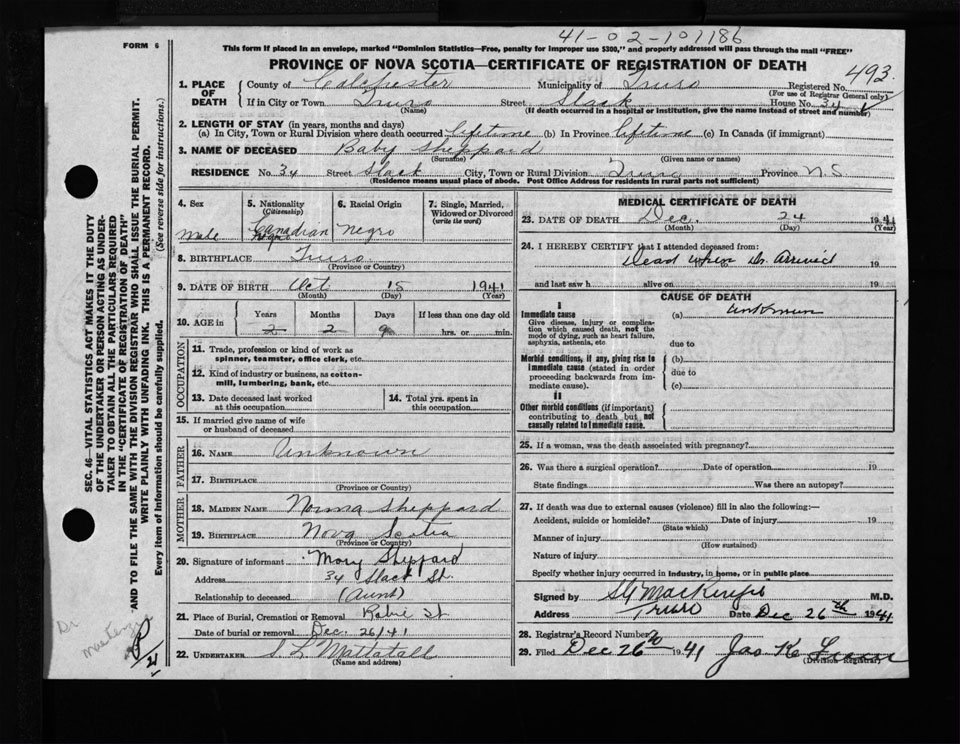 41-02-101186
FORM 6
This form if placed in an envelope, marked "Dominion Statistics—Free, penalty for improper use $300," and properly addressed will pass through the mail "FREE"
PROVINCE OF NOVA SCOTIA—CERTIFICATE OF REGISTRATION OF DEATH
493
1. PLACE OF DEATH County of Colchester Municipality of Truro Registered No.
(For use of Registrar General only)
If in City or Town Truro Street Slack House No. 34
(Name) (If death occurred in a hospital or institution, give the name instead of street and number)
2. LENGTH OF STAY (in years, months and days)
(a) In City, Town or Rural Division where death occurred lifetime (b) In Province lifetime (c) In Canada (if immigrant)
3. NAME OF DECEASED Baby Sheppard
(Surname) (Given name or names)
RESIDENCE No. 34 Street Slack City, Town or Rural Division Truro Province N.S.
(Residence means usual place of abode. Post Office Address for residents in rural parts not sufficient)
4. Sex male
5. Nationality (Citizenship) Canadian
6. Racial Origin Negro
7. Single, Married, Widowed or Divorced (write the word)
8. BIRTHPLACE Truro
(Province or Country)
9. DATE OF BIRTH Oct 15 1941
(Month) (Day) (Year)
10. AGE in Years Months Days If less than one day old
2 2 9 hrs. or min.
OCCUPATION
11. Trade, profession or kind of work as spinner, teamster, office clerk, etc.
12. Kind of industry or business, as cotton-mill, lumbering, bank, etc.
13. Date deceased last worked at this occupation
14. Total yrs. spent in this occupation
15. If married give name of wife or husband of deceased
FATHER
16. NAME Unknown
17. BIRTHPLACE
(Province or Country)
MOTHER
18. MAIDEN NAME Norma Sheppard
19. BIRTHPLACE Nova Scotia
(Province or Country)
20. Signature of informant Mary Sheppard
Address 34 Slack St.
Relationship to deceased (Aunt)
21. Place of Burial, Cremation or Removal Robie St
Date of burial or removal Dec. 26/41
22. UNDERTAKER S L Mattatall
(Name and address)
MEDICAL CERTIFICATE OF DEATH
23. DATE OF DEATH Dec. 24 1941
(Month) (Day) (Year)
24. I HEREBY CERTIFY that I attended deceased from:
Dead when Dr. arrived 19
and last saw h alive on 19
CAUSE OF DEATH
I
Immediate cause
Give disease, injury or complication which caused death, not the mode of dying, such as heart failure, asphyxia, asthenia, etc
(a) unknown
due to
Morbid conditions, if any, giving rise to immediate cause (stated in order proceeding backwards from immediate cause).
(b)
due to
(c)
II
Other morbid conditions (if important) contributing to death but not causally related to immediate cause.
25. If a woman, was the death associated with pregnancy?
26. Was there a surgical operation? Date of operation 19
State findings Was there an autopsy?
27. If death was due to external causes (violence) fill in also the following:—
Accident, suicide or homicide? Date of injury 19
(State which)
Manner of injury
(How sustained)
Nature of injury
Specify whether injury occurred in industry, in home, or in public place
Signed by M.D.
Address Truro Date Dec 26th 1941
28. Registrar's Record Number
29. Filed Dec 26th 1941 Jas K
(Division Registrar)
SEC. 46—VITAL STATISTICS ACT MAKES IT THE DUTY
OF THE UNDERTAKER OR PERSON ACTING AS UNDER-
TAKER TO OBTAIN ALL THE PARTICULARS REQUIRED
IN THE "CERTIFICATE OF REGISTRATION OF DEATH"
AND TO FILE THE SAME WITH THE DIVISION REGISTRAR WHO SHALL ISSUE THE BURIAL PERMIT.
WRITE PLAINLY WITH UNFADING INK. THIS IS A PERMANENT RECORD.
Every item of information should be carefully supplied. (See reverse side for instructions.)
Dr